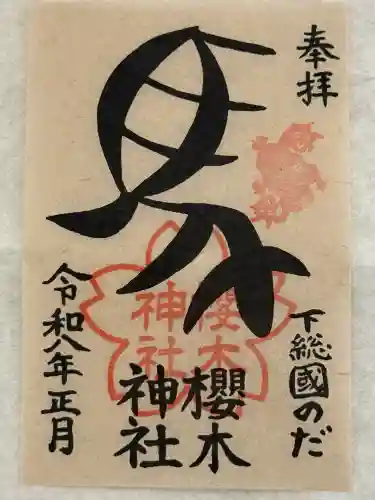 奉拝
下総國のだ
馬
櫻木
神社
櫻木
神社
令和八年正月